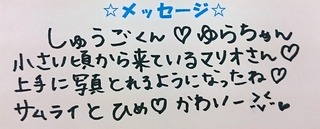 ☆メッセージ☆
しゅうごくん♡ゆらちゃん
小さい頃から来ているマリオさん♡
上手に写真とれるようになったね♡
サムライとひめ♡かわいー